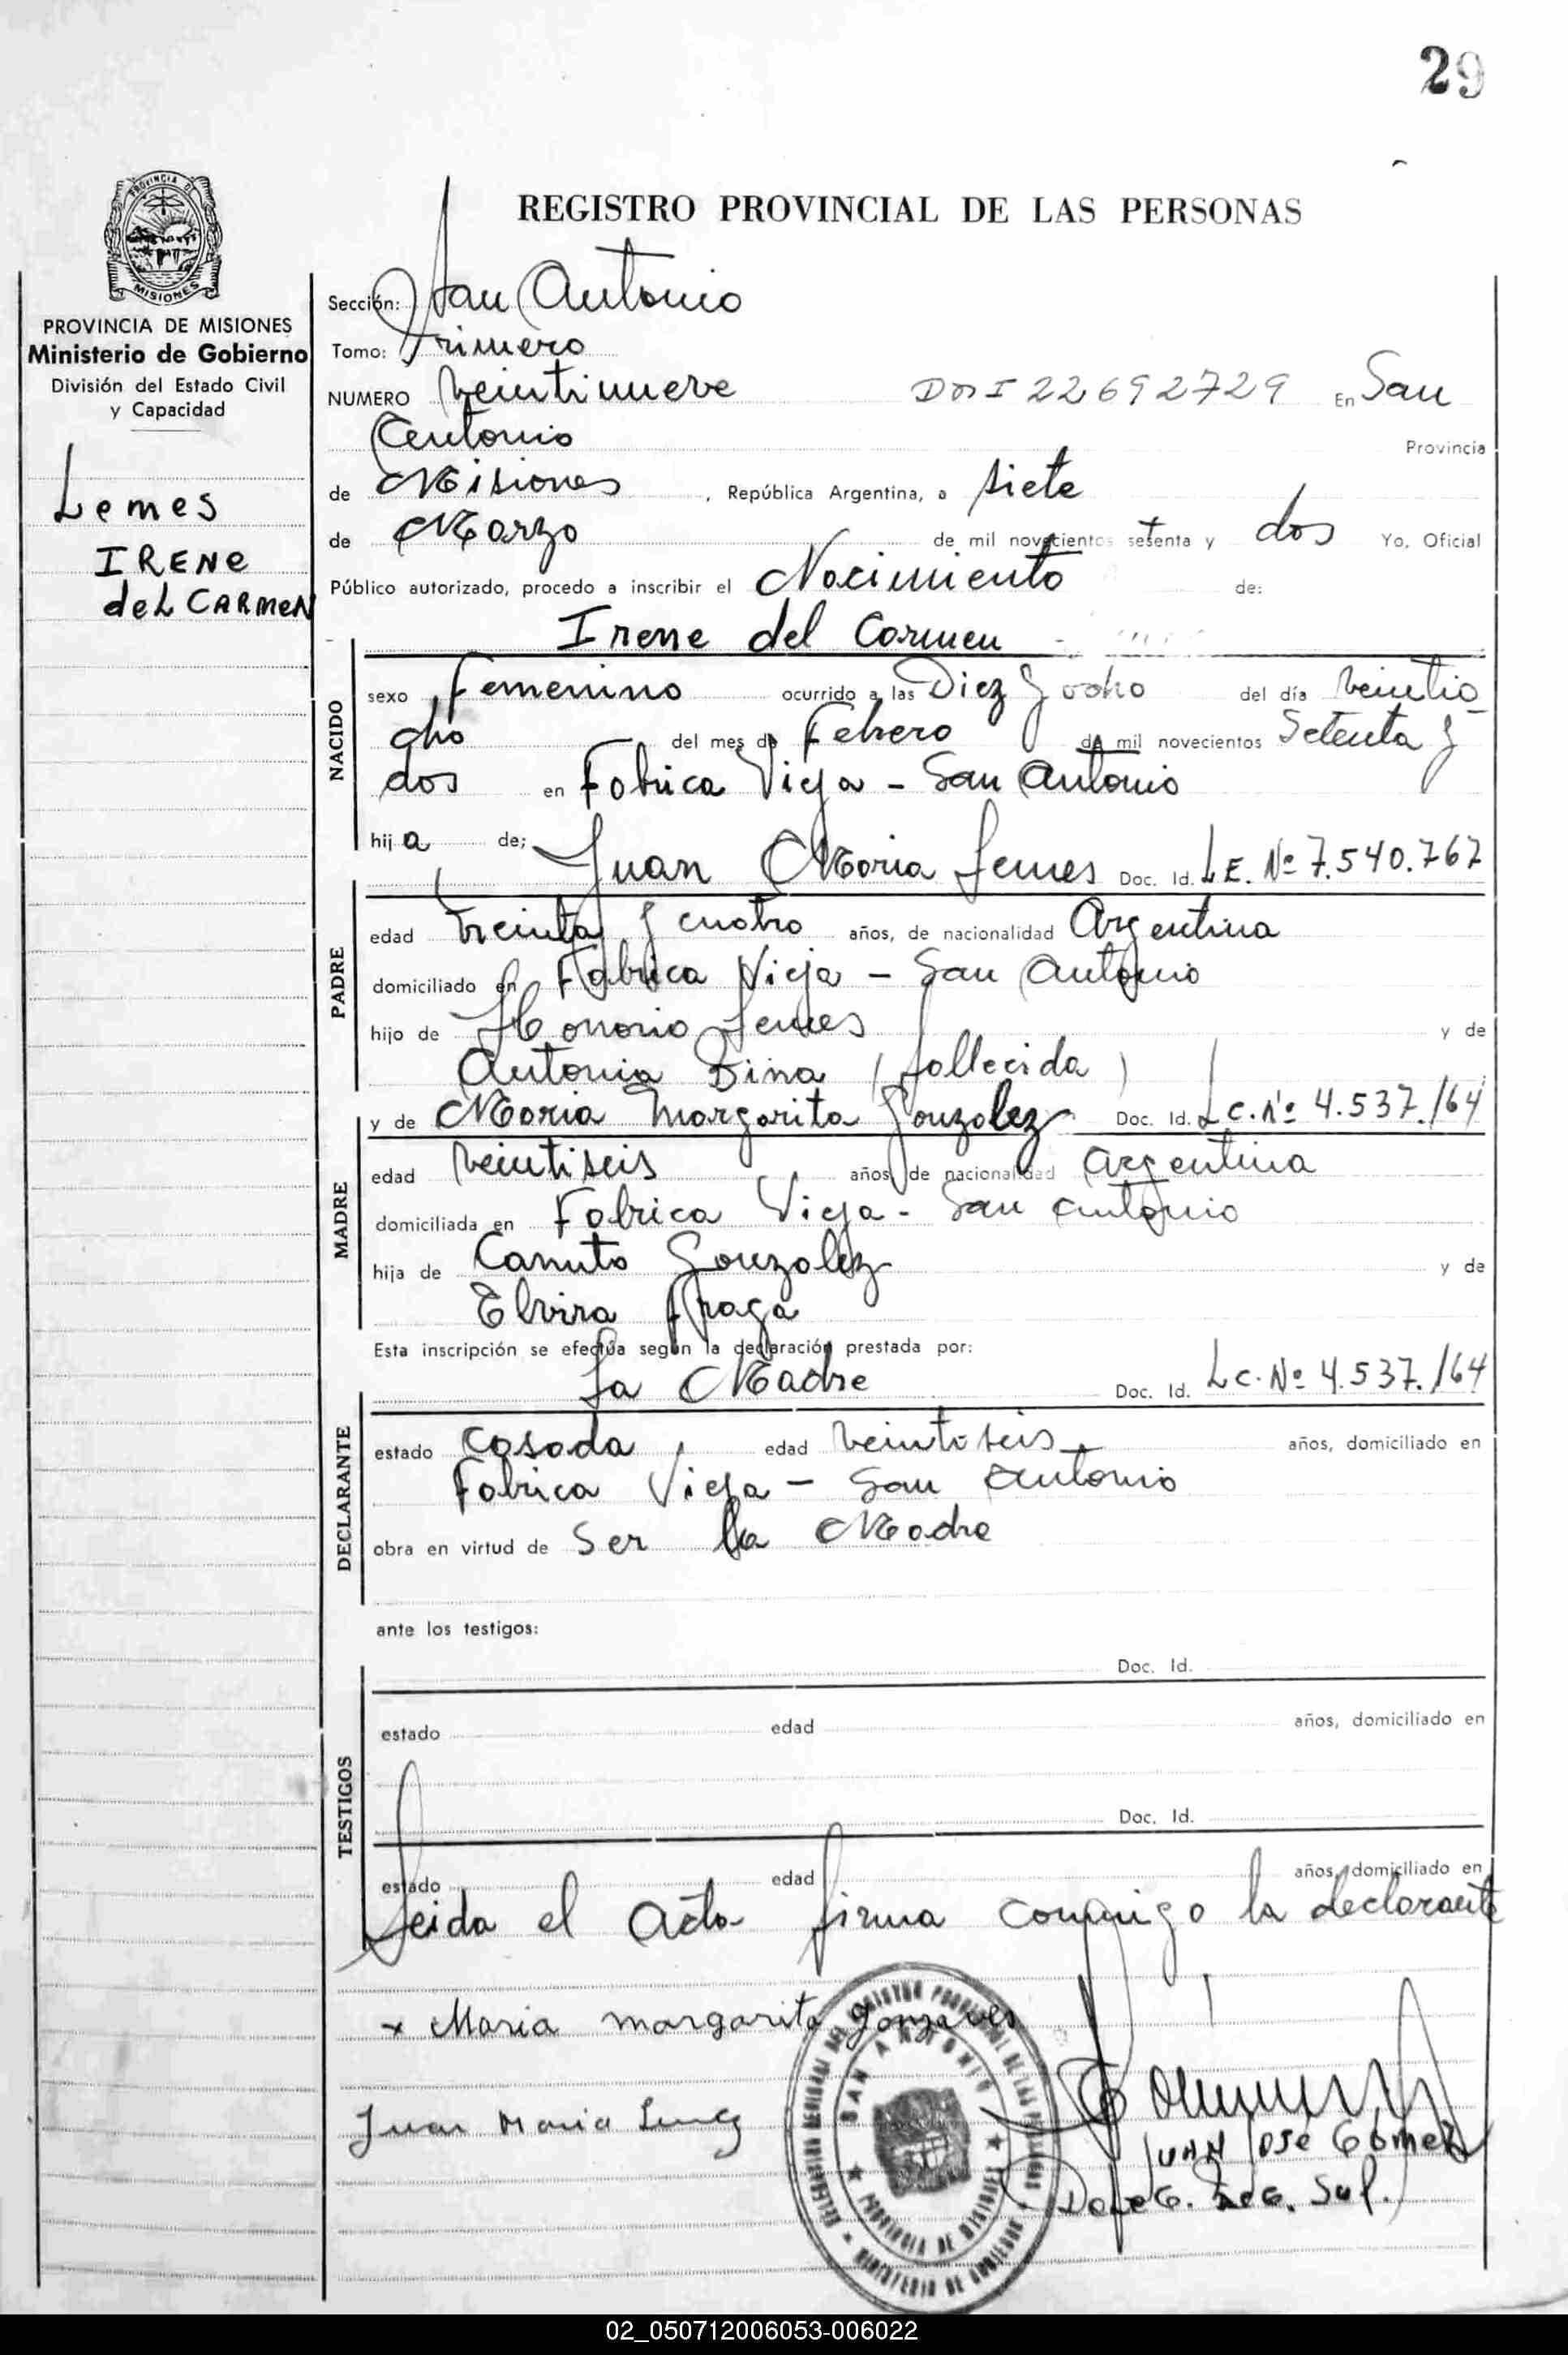 29
PROVINCIA DE
MISIONES
PROVINCIA DE MISIONES
Ministerio de Gobierno
División del Estado Civil
y Capacidad
Lemes
IRENE
del CARMEN
REGISTRO PROVINCIAL DE LAS PERSONAS
Sección: San Antonio
Tomo: Primero
NUMERO Veintinueve DNI 22692729 En San
Antonio Provincia
de Misiones, República Argentina, a siete
de Marzo de mil novecientos setenta y dos Yo, Oficial
Público autorizado, procedo a inscribir el Nacimiento de:
Irene del Carmen
NACIDO
sexo Femenino ocurrido a las Diez y ocho del día Veintio
cho del mes de Febrero de mil novecientos Setenta y
dos en Fabrica Vieja - San Antonio
hija de; Juan Maria Lemes Doc. Id. L.E. Nº 7.540.767
PADRE
edad treinta y cuatro años, de nacionalidad Argentina
domiciliado en Fabrica Vieja - San Antonio
hijo de Honorio Lemes y de
Antonia Bina (fallecida)
y de Maria Margarita Gonzalez Doc. Id. L.C. Nº 4.537.164
MADRE
edad Veintiseis años, de nacionalidad Argentina
domiciliada en Fabrica Vieja - San Antonio
hija de Canuto Gonzalez y de
Elvira Fraga
Esta inscripción se efectúa según la declaración prestada por:
La Madre Doc. Id. L.C. Nº 4.537.164
DECLARANTE
estado Casada, edad Veintiseis años, domiciliado en
Fabrica Vieja - San Antonio
obra en virtud de Ser la Madre
ante los testigos:
Doc. Id.
TESTIGOS
estado edad años, domiciliado en
Doc. Id.
estado edad años, domiciliado en
Leida el Acta firma conmigo la declarante
x Maria margarita gonzalves
Juan Maria
SAN ANTONIO
PROVINCIA DE MISIONES
MINISTERIO DE GOBIERNO
JUAN JOSE GOMEZ
02_050712006053-006022